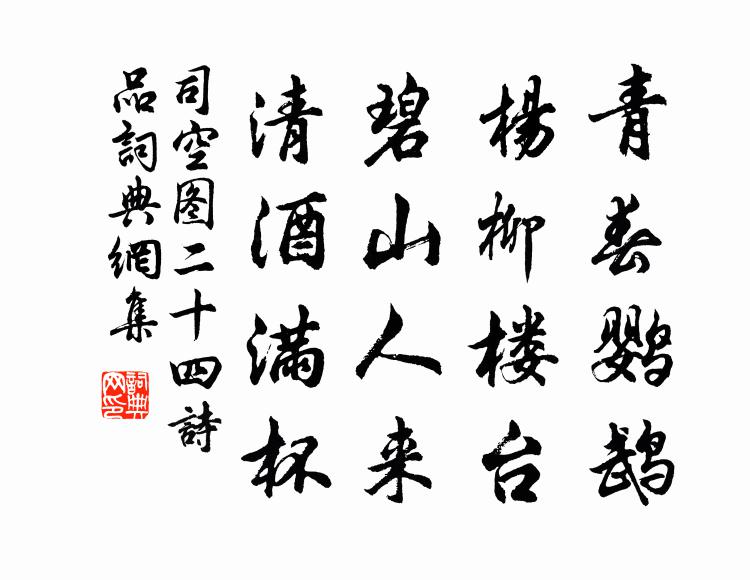 青春鹦鹉
楊柳楼台
碧山人来
清酒满杯
司空图二十四詩
品詞典網集
詞典
网印